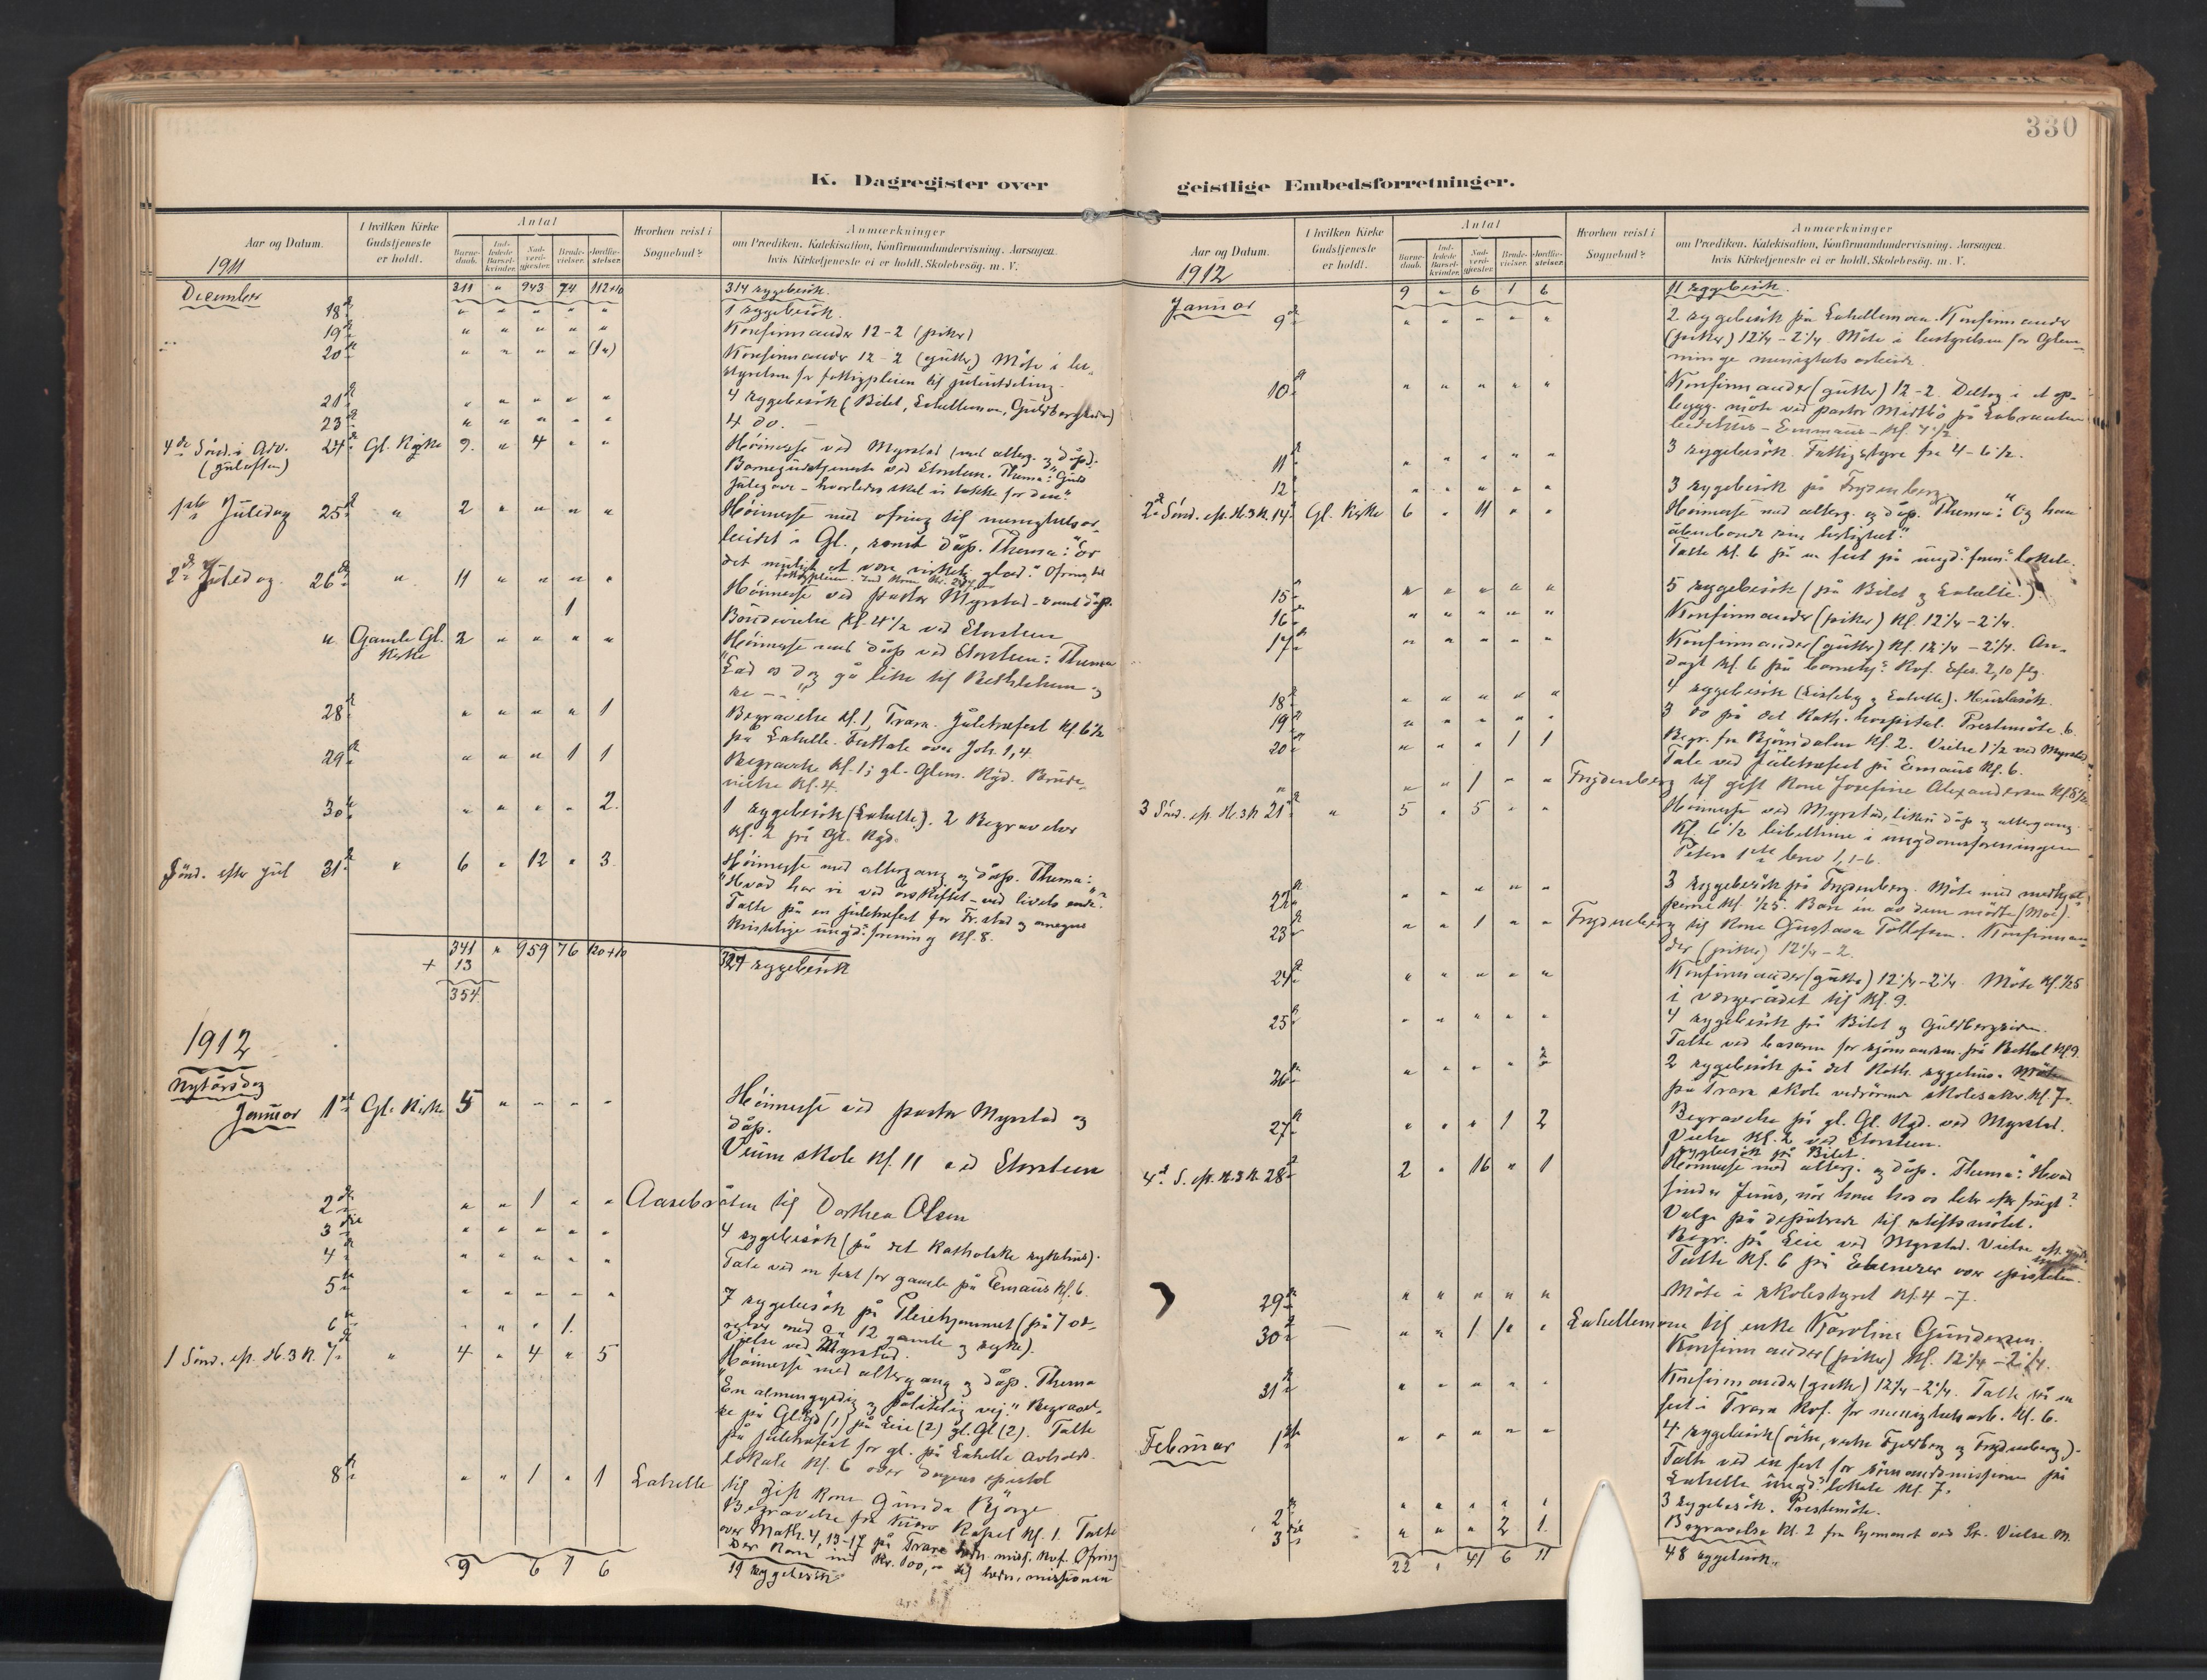 330
K. Dagregister over
geistlige Embedsforretninger.
Aar og Datum.
1911
I hvilken Kirke Gudstjeneste er holdt.
Antal
Barnedaab.
Indledede Barselkvinder.
Nadverdgjester.
Brudevielser.
Jordfæstelser.
Hvorhen reist i Sognebud?
Anmærkninger
om Prædiken, Katekisation, Konfirmandundervisning, Aarsagen
hvis Kirketjeneste ei er holdt, Skolebesög, m. V.
December 311 " 943 74 112+10 314 sygebesök.
18 " " " " " 1 sygebesök.
19 " " " " " Konfirmander 12-2 (piker)
20 " " " " Konfirmander 12-2 (gutter) Möte i be-
styrelsen for fattigpleien til juleutdeling.
21 " " " " " 4 sygebesök (Bilet, Lahellemoen, Guldbergsiden)
23 " " " " " 4 do. -
4de Sönd. i Adv. 24 Gl. Kirke 9. " 4 " " Höimesse ved Myrstad (med alterg. og dåp).
(juleaften) Barnegudstjeneste ved Storsteen. Thema: "Guds
julegave - hvorledes skal vi takke for den"
1ste Juledag 25 " 2 " " " " Höimesse med ofring til menighetsar-
beidet i Gl., samt dåp. Thema: "Er
det mulig at være virkelig glad." Ofring til
fattigpleien.
2den Juledag. 26 " 11 " " " " Höimesse ved pastor Myrstad - samt dåp.
1 Brudevielse Kl. 4 1/2 ved Storsteen
" Gamle Gl. Kirke 2 " " " " Höimesse med dåp ved Storsteen: Thema
"Lad os dog gå like til Bethlehem og
se - - "
28 " " " " 1 Begravelse Kl. 1, Trara. Juletræfest Kl. 6 1/2
på Lahelle. Festtale over Joh. 1,4.
29 " " " 1 1 Begravelse Kl. 1; gl. Glem. Kgd. Brude-
vielse Kl. 4.
30 " " " " 2. 1 sygebesök (Lahelle). 2 Begravelser
Kl. 2 på Gl. Kgd.
Sönd. efter Jul 31 " 6 " 12 " 3. Höimesse med altergang og dåp. Thema:
"Hvad har vi ved årsskiftet - ved livets ende"?
Talte på en juletræfest for Fr.stad og omegns
kristelige ungd. forening Kl. 8.
341 " 959 76 120+10 327 sygebesök
+ 13
354
1912
Nytårsdag
Januar 1 Gl. Kirke 5 " " " " Höimesse ved pastor Myrstad og
dåp.
Veum skole Kl. 11 ved Storsteen
2 " " 1 " " Aasebråten til Dorthea Olsen
3 " " " " " 4 sygebesök (på det katholske sykehus).
4 " " " " " Tale ved en fest for gamle på Emaus Kl. 6.
5 " " " " " 7 sygebesök på Pleiehjemmet (på 7 væ-
relser med ca 12 gamle og syke).
6 " " " 1. Vielse ved Myrstad.
1 Sönd. ef. H.3 K. 7 " 4 " 4 " 5 Höimesse med altergang og dåp. Thema
"En almengyldig og pålitelig vej." Begravel-
se på Gl. Kgd (1) på Leie (2) gl. Gl (2). Talte
på juletræfest for gl. på Lahelle avholds-
lokale Kl. 6 over dagens epistel
8 " " 1 " 1 Lahelle til gift Kone Gunda Björge
Begravelse fra Kapel Kl. 1. Talte
over Math. 4, 13-17 på Trara hedn. miss. Kvf. Ofring
Der kom ind Kr. 100,- til hedn. missionen
9 6 1 6 11 sygebesök
Aar og Datum.
1912
I hvilken Kirke Gudstjeneste er holdt.
Antal
Barnedaab.
Indledede Barselkvinder.
Nadverdgjester.
Brudevielser.
Jordfæstelser.
Hvorhen reist i Sognebud?
Anmærkninger
om Prædiken, Katekisation, Konfirmandundervisning, Aarsagen
hvis Kirketjeneste ei er holdt, Skolebesög, m. V.
Januar 9 " 6 1 6 11 sygebesök.
9 " " " " " 2 sygebesök på Lahellemoen. Konfirmander
(piker) 12 1/4 - 2 1/4. Möte i bestyrelsen for Glem-
minge menighets arbeide.
10 " " " " " Konfirmander (gutter) 12-2. Deltog i et op-
bygg. möte ved pastor Midtbö på
- Emmaus - Kl. 7 1/2
11 " " " " " 3 sygebesök. Fattigstyre fra 4-6 1/2.
12 " " " " " 3 sygebesök på Frydenberg.
2 Sönd. ef. H.3 K. 14 Gl. Kirke 6 " 11 " " Höimesse med alterg. og dåp. Thema: "Og han
åbenbarede sin herlighet."
Talte Kl. 6 på en fest på ungd. foren. lokale.
15 " " " " " 5 sygebesök (på Bilet og Lahelle.)
16 " " " " " Konfirmander (piker) Kl. 12 1/4 - 2 1/4.
17 " " " " " Konfirmander (gutter) Kl. 12 1/4 - 2 1/4. An-
dagt Kl. 6 på barnehj. Kvf. Efes. 2,10 flg.
18 " " " " " 4 sygebesök (Lisleby og Lahelle). Husbesök.
19 " " " " " 3 do på det Kath. hospital. Prestemöte 6.
20 " " " 1 1 Begr. fra Björndalen Kl. 2. Vielse 1 1/2 ved Myrstad.
Tale ved juletræfest på Emaus Kl. 6.
" " " 1 " " Frydenberg til gift Kone Josefine Alexandersen Kl. 8 1/2
3 Sönd. ef. H.3 K 21 " 5 " 5 " " Höimesse ved Myrstad, likeså dåp og altergang
Kl. 6 1/2 bibeltime i ungdomsforeningen
Peters 1ste brev 1, 1-6.
22 " " " " " 3 sygebesök på Frydenberg. Möte med medhjæl-
perne Kl. 1/2 5. Bare en av dem mötte (Moe).
23 " " 1 " " Frydenberg til Kone Gustava Tollefsen. Konfirman-
der (piker) 12 1/4 - 2.
24 " " " " " Konfirmander (gutter) 12 1/4 - 2 1/4. Möte Kl. 1/2 5
i værgerådet til Kl. 9.
25 " " " " " 4 sygebesök på Bilet og Guldbergsiden.
Talte ved basaren for sjömandsm. på Bethel Kl. 9.
26 " " " " 2 2 sygebesök på det Kath. sygehus. Möte
på Trara skole vedrörende skolesaker. Kl. 7.
27 " " " 1 2 Begravelse på gl. Gl. Kgd. ved Myrstad.
Vielse Kl. 2 ved Storsteen.
1 sygebesök på Bilet.
4 S. ef. H.3 K. 28 2 " 16 " 1 Höimesse med alterg. og dåp. Thema: "Hvad
finder Jesus, når han hos os leter efter frugt?
Valg på deputerede til stiftsmötet.
Begr. på Leie ved Myrstad. Vielse
Talte Kl. 6 på Ebenezer over epistelen.
29 " " " " " Möte i skolestyret Kl. 4-7.
30 " " 1 " " Lahellemoen til enke Karoline Gundersen.
Konfirmander (piker) Kl. 12 1/4 - 2 1/4.
31 " " " " " Konfirmander (gutter) 12 1/4 - 2 1/4. Talte på en
fest i Trara Kvf. for menighetsarb. Kl. 6.
Februar 1 " " " " " 4 sygebesök (östre, vestre Fjeldberg og Frydenberg).
Talte ved en fest for sjömandsmissionen på
Lahelle ungd. lokale Kl. 7.
2 " " " " " 3 sygebesök. Prestemöte.
3 " " " 2 1. Begravelse Kl. 2 fra ved St. Vielse M.
22 " 41 6 11 48 sygebesök.